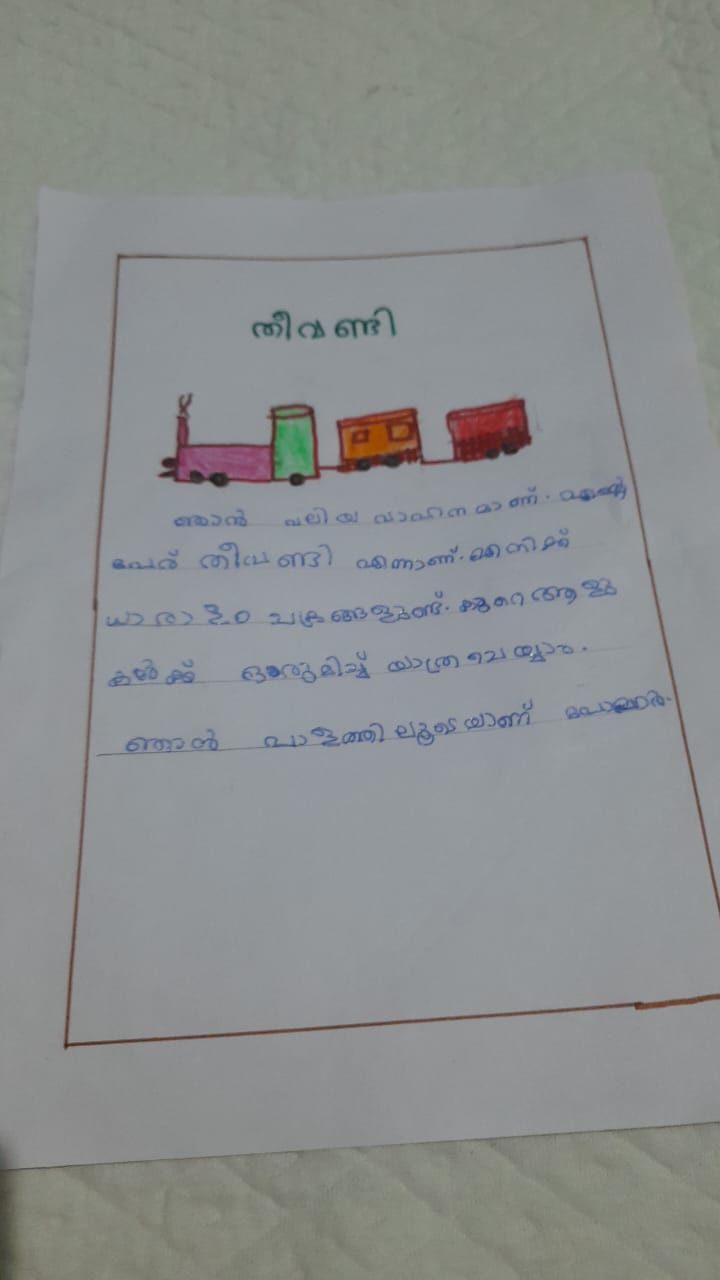 തീവണ്ടി
ഞാൻ വലിയ വാഹനമാണ്. എന്റെ
പേര് തീവണ്ടി എന്നാണ്. എനിക്ക്
ധാരാളം ചക്രങ്ങളുണ്ട്. കുറെ ആളു
കൾക്ക് ഒരുമിച്ച് യാത്ര ചെയ്യാം.
ഞാൻ പാളത്തിലൂടെയാണ്